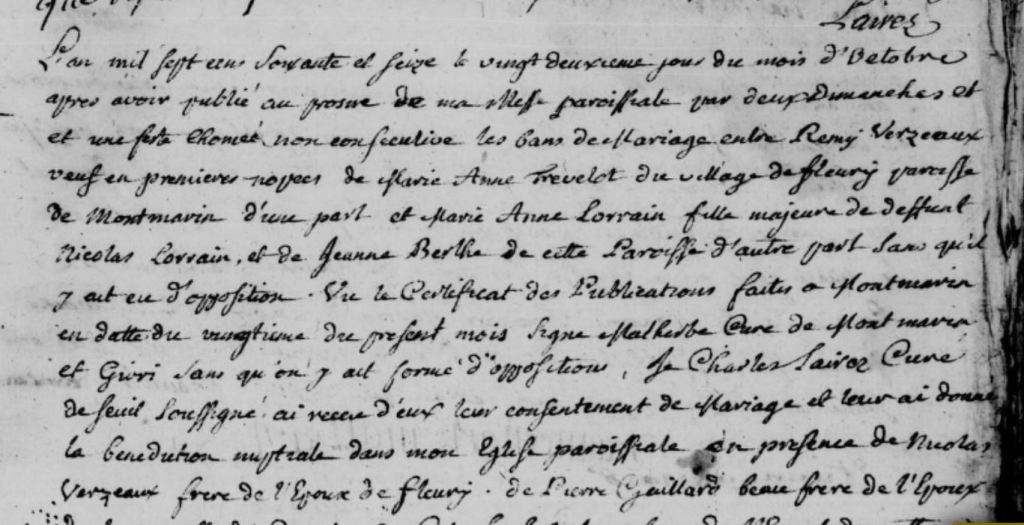 Lairez
L'an mil sept cens soixante et seize le vingt deuxieme jour du mois d'Octobre
apres avoir publié au prosne de ma Messe paroissiale par deux Dimanches et
et une feste Chomée non consecutive les bans de Mariage entre Remy Verzeaux
veuf en premieres nopces de Marie Anne Trevelot du village de fleury paroisse
de Montmarin d'une part et Marie Anne Lorrain fille majeure de deffunt
Nicolas Lorrain, et de Jeanne Berthe de cette Paroisse d'autre part sans qu'il
y ait eu d'opposition. Vu le Certificat des Publications faites a Montmarin
en datte du vingtieme du present mois signe Malherbe Curé de Montmarin
et Givri sans qu'on y ait formé d'oppositions, Je Charles Lairez Curé
de seuil soussigné ai receu d'eux leur consentement de Mariage et leur ai donné
la benediction nuptiale dans mon Eglise paroissiale en presence de Nicolas
Verzeaux frere de l'Epoux de fleury. de Pierre Guillard beau frere de l'Epoux